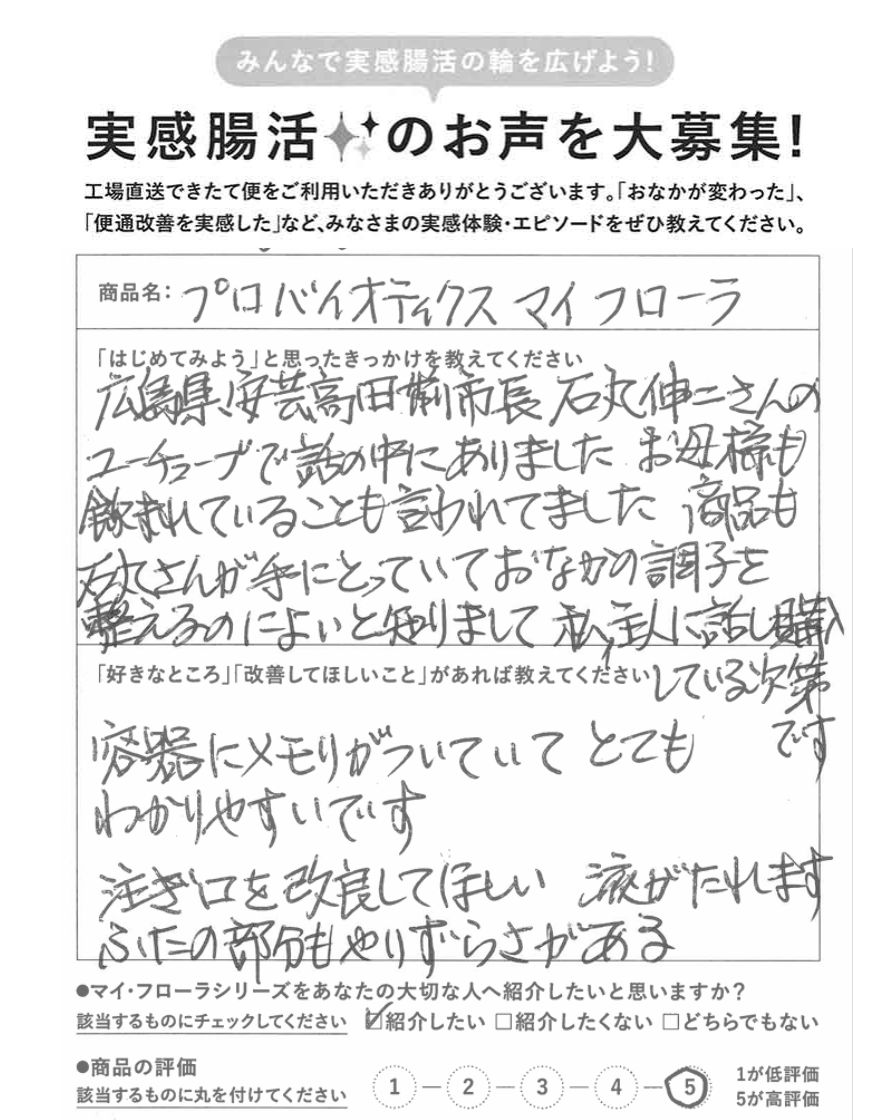 みんなで実感腸活の輪を広げよう!
実感腸活のお声を大募集!
工場直送できたて便をご利用いただきありがとうございます。「おなかが変わった」、
「便通改善を実感した」など、みなさまの実感体験・エピソードをぜひ教えてください。
商品名: プロバイオティクス マイフローラ
「はじめてみよう」と思ったきっかけを教えてください
広島県安芸高田前市長 石丸伸二さんの
ユーチューブで話の中にありました お母様も
飲まれていることも言われてました 商品も
石丸さんが手にとっていておなかの調子を
整えるのによいと知りまして 私、主人に話し購入
している次第
です
「好きなところ」「改善してほしいこと」があれば教えてください
容器にメモリがついていて とても
わかりやすいです
注ぎ口を改良してほしい 液がたれます
ふたの部分もやりずらさがある
●マイ・フローラシリーズをあなたの大切な人へ紹介したいと思いますか?
該当するものにチェックしてください ☑紹介したい □紹介したくない □どちらでもない
●商品の評価
該当するものに丸を付けてください 1 2 3 4 5
1が低評価
5が高評価